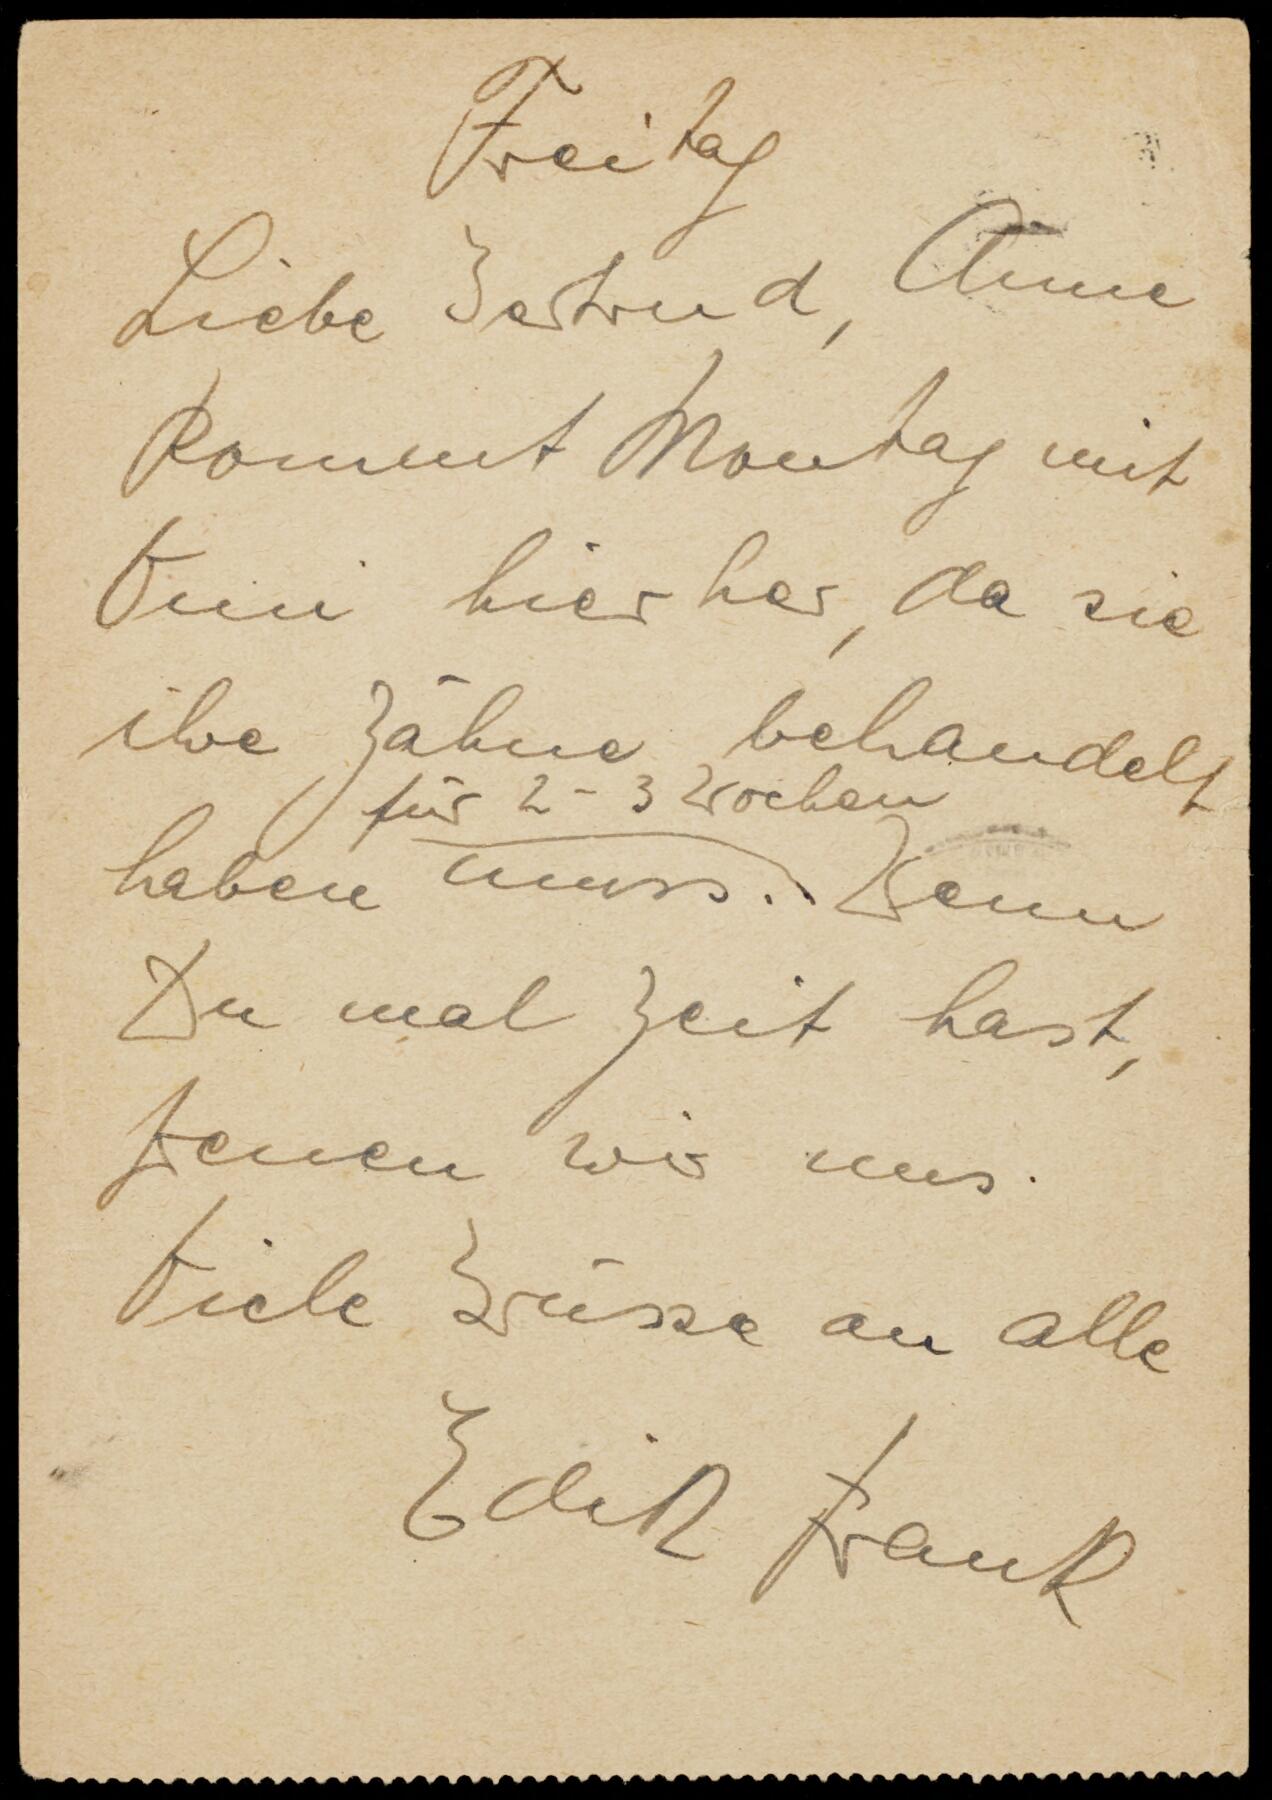 Freitag
Liebe Gertrud, Anne
kommt Montag mit
hierher, da sie
ihre Zähne behandelt
für 2-3 Wochen
haben muss. Wenn
Du mal Zeit hast,
freuen wir uns.
Viele Grüsse an alle
Edith Frank